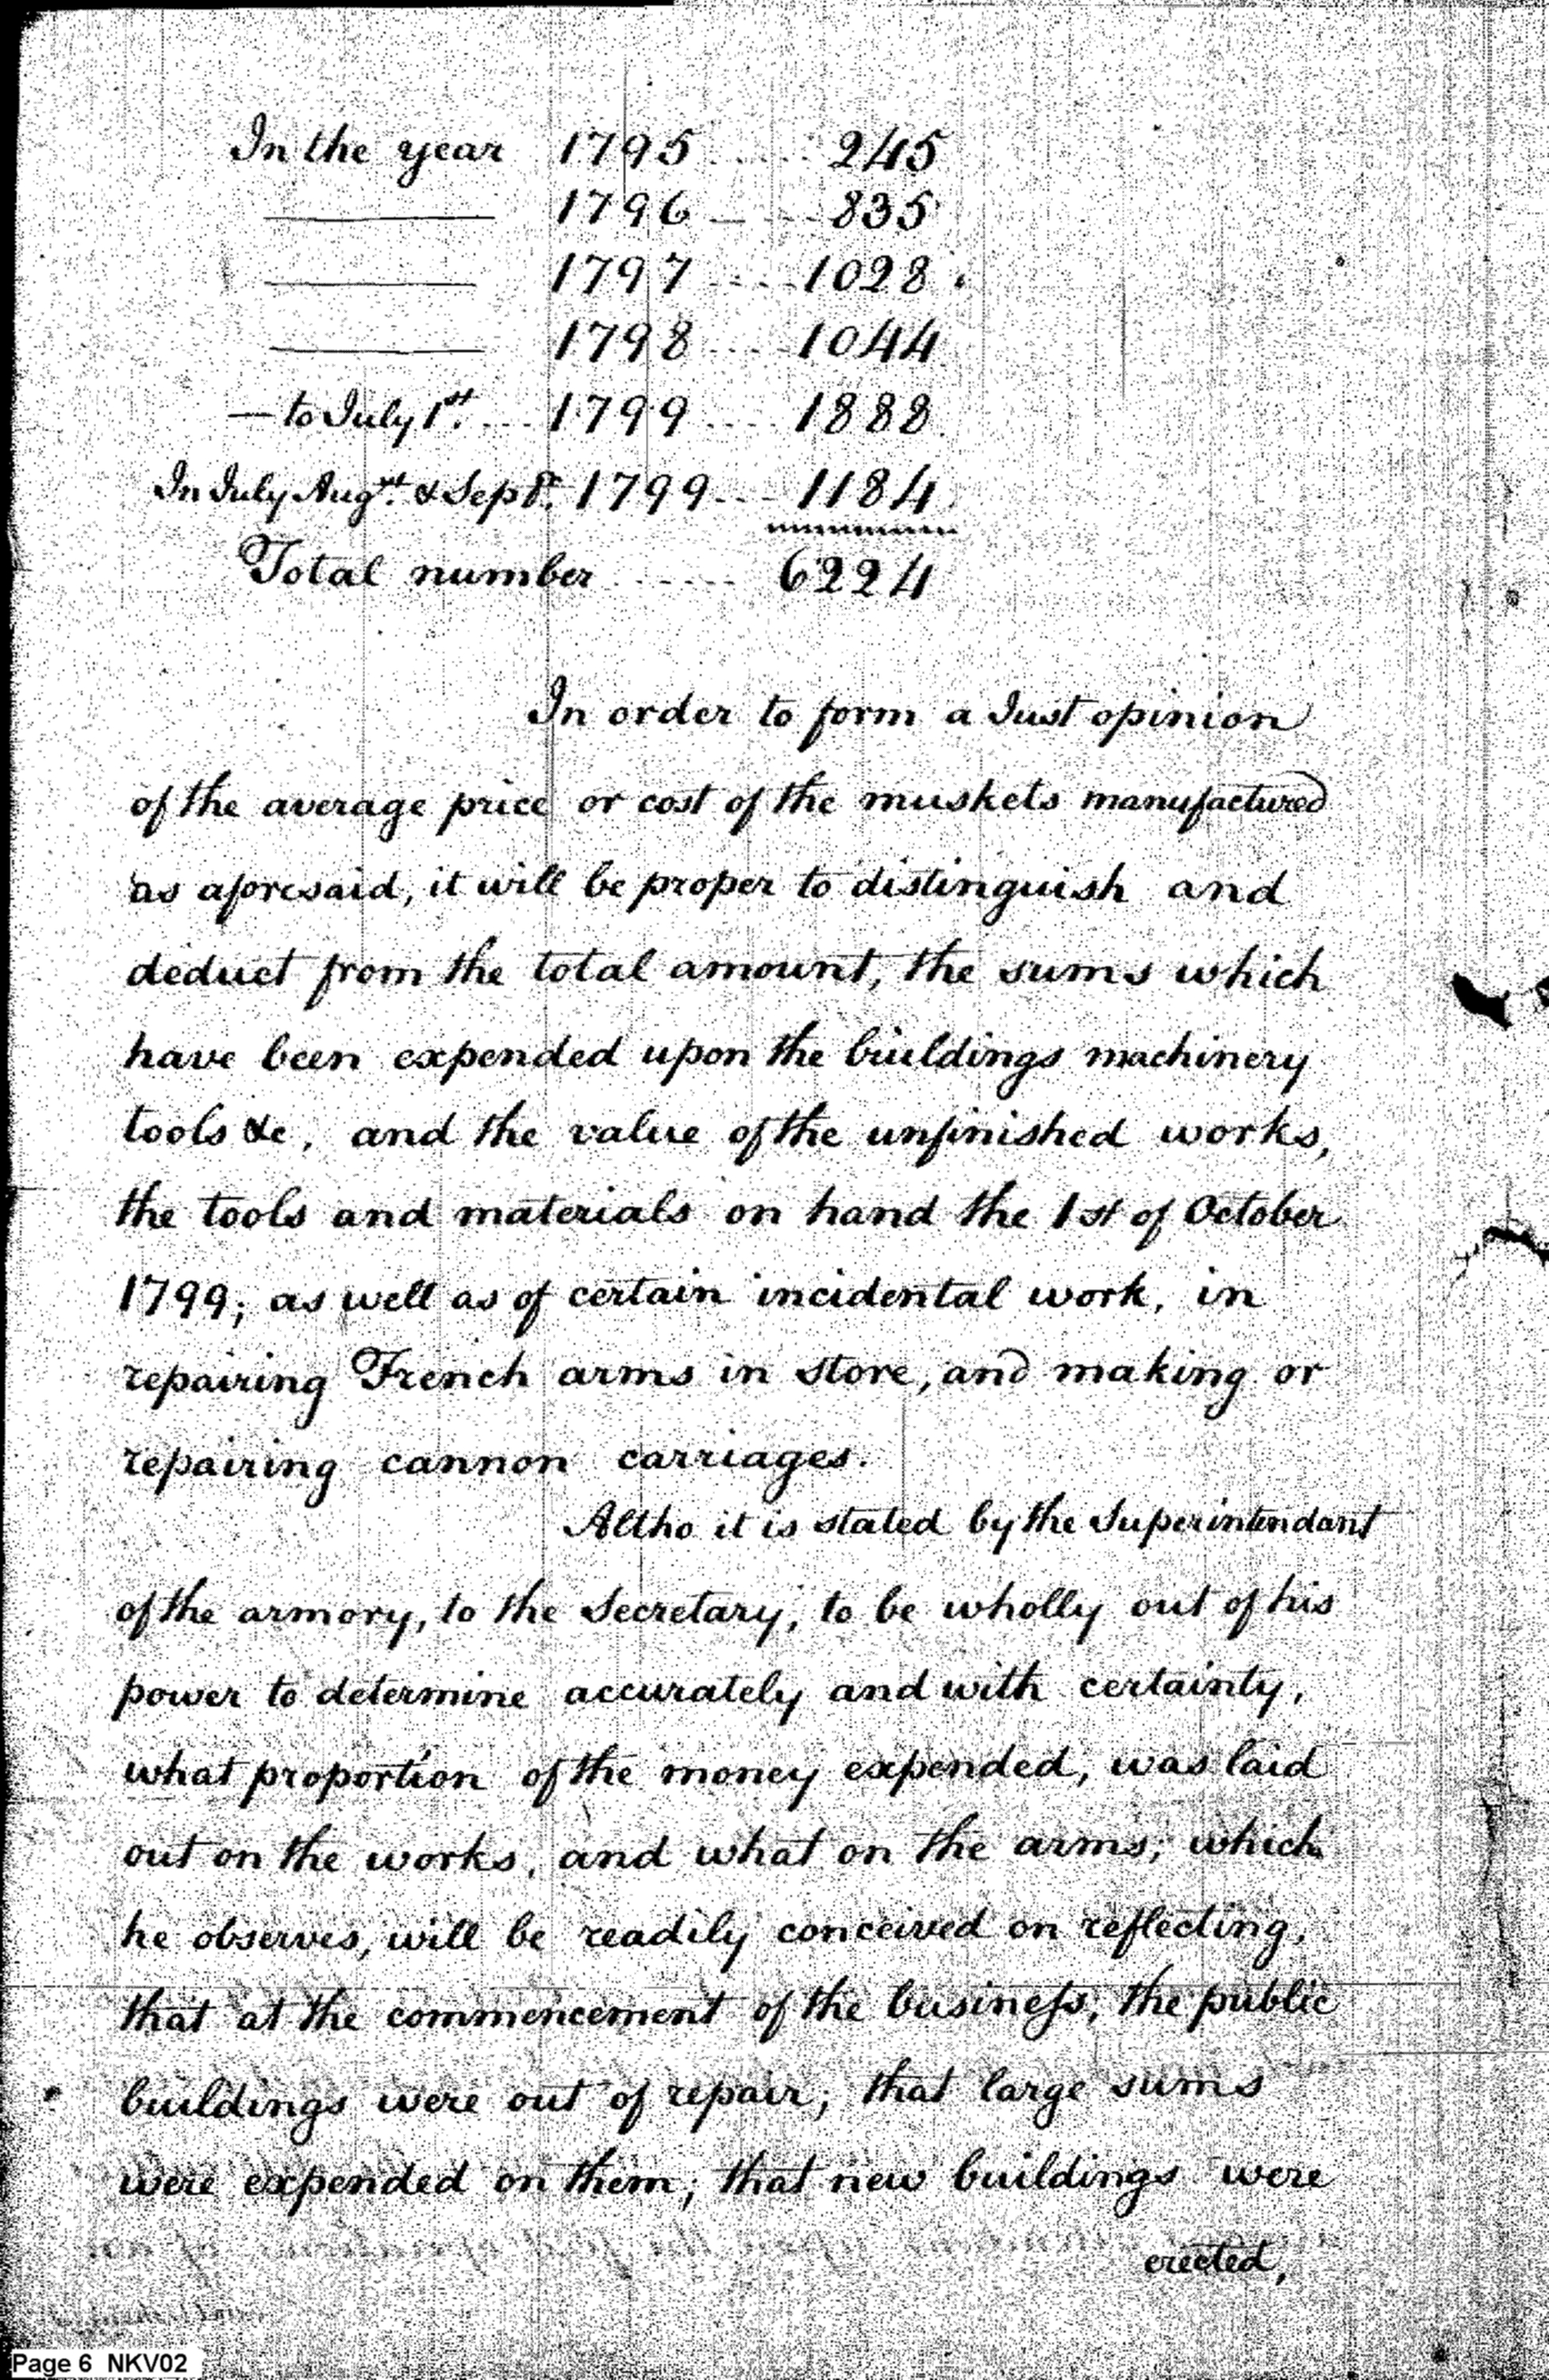 In the year 1795 ..... 245
———— 1796 — ... 835
———— 1797 .... 1028
———— 1798 .... 1044
— to July 1st. ... 1799 .... 1888
In July Augst. & Septr. 1799 ... 1184
Total number ...... 6224
In order to form a Just opinion
of the average price or cost of the muskets manufactured
as aforesaid, it will be proper to distinguish and
deduct from the total amount, the sums which
have been expended upon the buildings machinery
tools &c, and the value of the unfinished works,
the tools and materials on hand the 1st of October
1799; as well as of certain incidental work, in
repairing French arms in store, and making or
repairing cannon carriages.
Altho it is stated by the Superintendant
of the armory, to the Secretary, to be wholly out of his
power to determine accurately and with certainty,
what proportion of the money expended, was laid
out on the works, and what on the arms; which
he observes, will be readily conceived on reflecting,
that at the commencement of the business, the public
buildings were out of repair; that large sums
were expended on them; that new buildings were
erected,
Page 6 NKV02